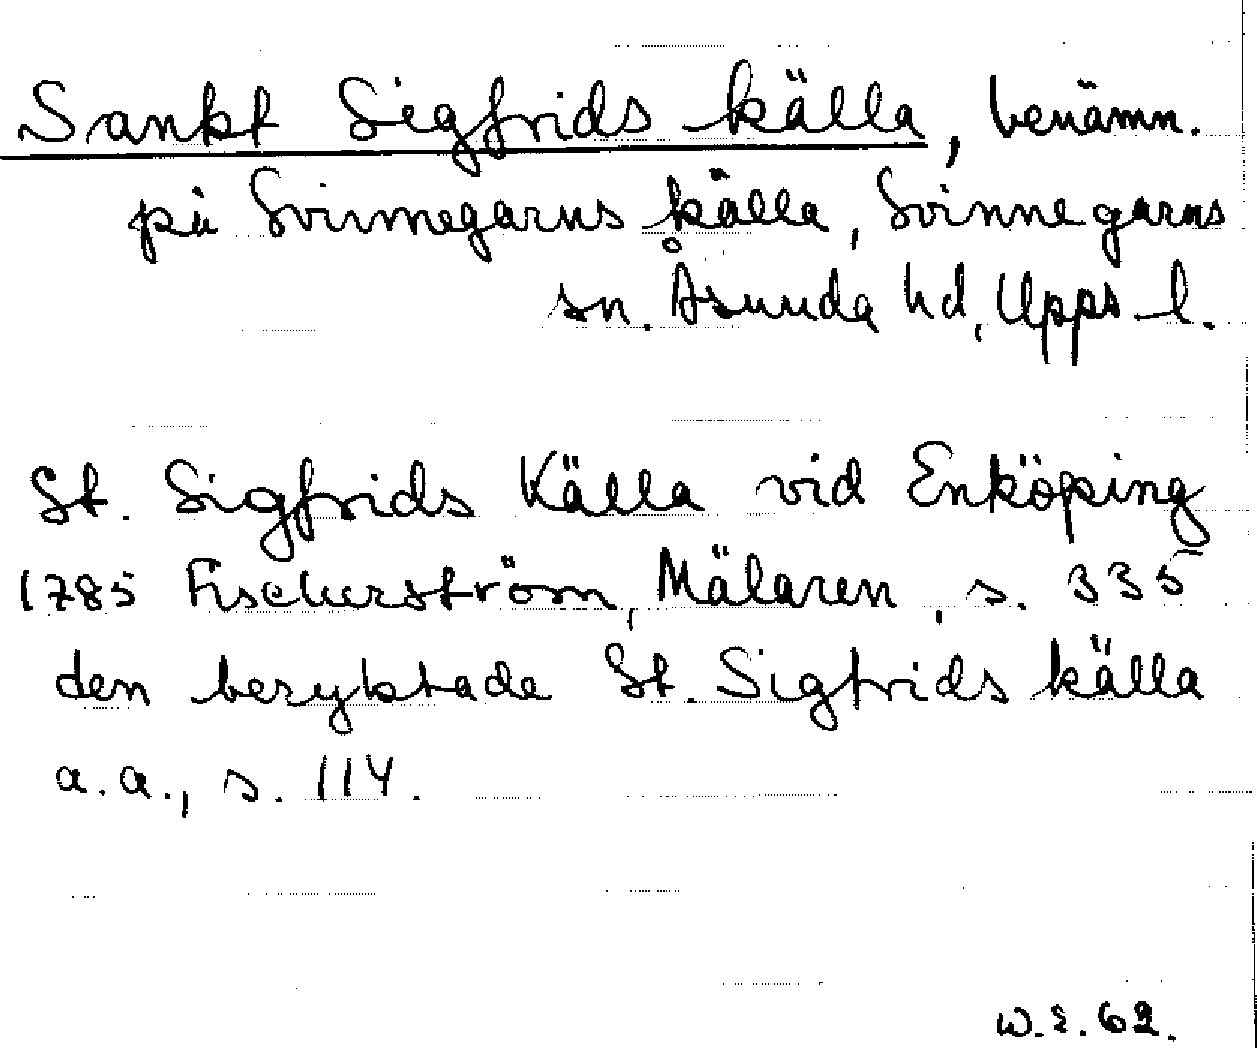 Sankt Sigfrids källa, benämn.
på Svinnegarns källa, Svinnegarns
sn. Åsunda hd, Upps l.
St. Sigfrids Källa vid Enköping
1785 Fischerström, Mälaren, s. 335
den beryktade St. Sigfrids källa
a.a., s. 114.
W.E.62.